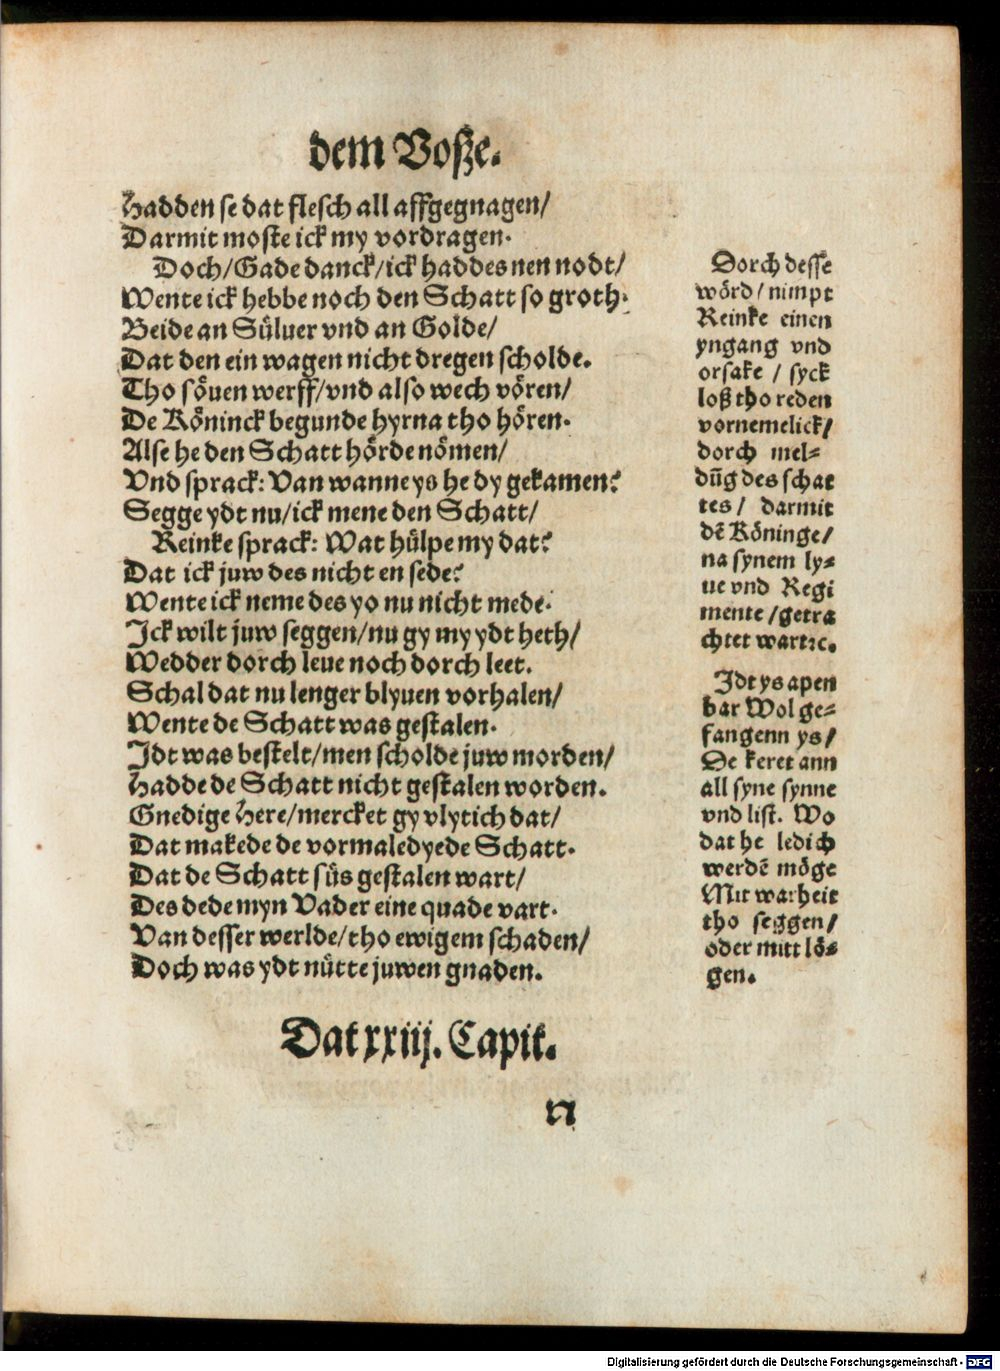 dem Voſze.
Hadden se dat flesch all affgegnagen/
Darmit moste ick my vordragen.
Doch/Gade danck/ick haddes nen nodt/
Wente ick hebbe noch den Schatt so groth.
Beide an Süluer vnd an Golde/
Dat den ein wagen nicht dregen scholde.
Tho söuen werff/vnd also wech vören/
De Köninck begunde hyrna tho hören.
Alse he den Schatt hörde nömen/
Vnd sprack: Van wanne ys he dy gekamen?
Segge ydt nu/ick mene den Schatt/
Reinke sprack: Wat hülpe my dat?
Dat ick juw des nicht en sede?
Wente ick neme des yo nu nicht mede.
Ick wilt juw seggen/nu gy my ydt heth/
Wedder dorch leue noch dorch leet.
Schal dat nu lenger blyuen vorhalen/
Wente de Schatt was gestalen.
Idt was bestelt/men scholde juw morden/
Hadde de Schatt nicht gestalen worden.
Gnedige Here/mercket gy vlytich dat/
Dat makede de vormaledyede Schatt.
Dat de Schatt süs gestalen wart/
Des dede myn Vader eine quade vart.
Van desser werlde/tho ewigem schaden/
Doch was ydt nütte juwen gnaden.
Dat xxiij. Capit.
N
Dorch desse
wörd/nimpt
Reinke einen
yngang vnd
orsake / syck
loß tho reden
vornemelick/
dorch mel=
dūg des schat
tes / darmit
dē Köninge/
na synem ly=
ue vnd Regi
mente/getra
chtet wart⁊c.
Idt ys apen
bar Wol ge=
fangenn ys/
De keret ann
all syne synne
vnd list. Wo
dat he ledich
werdē möge
Mit warheit
tho seggen/
oder mitt lö=
gen.
Digitalisierung gefördert durch die Deutsche Forschungsgemeinschaft - DFG